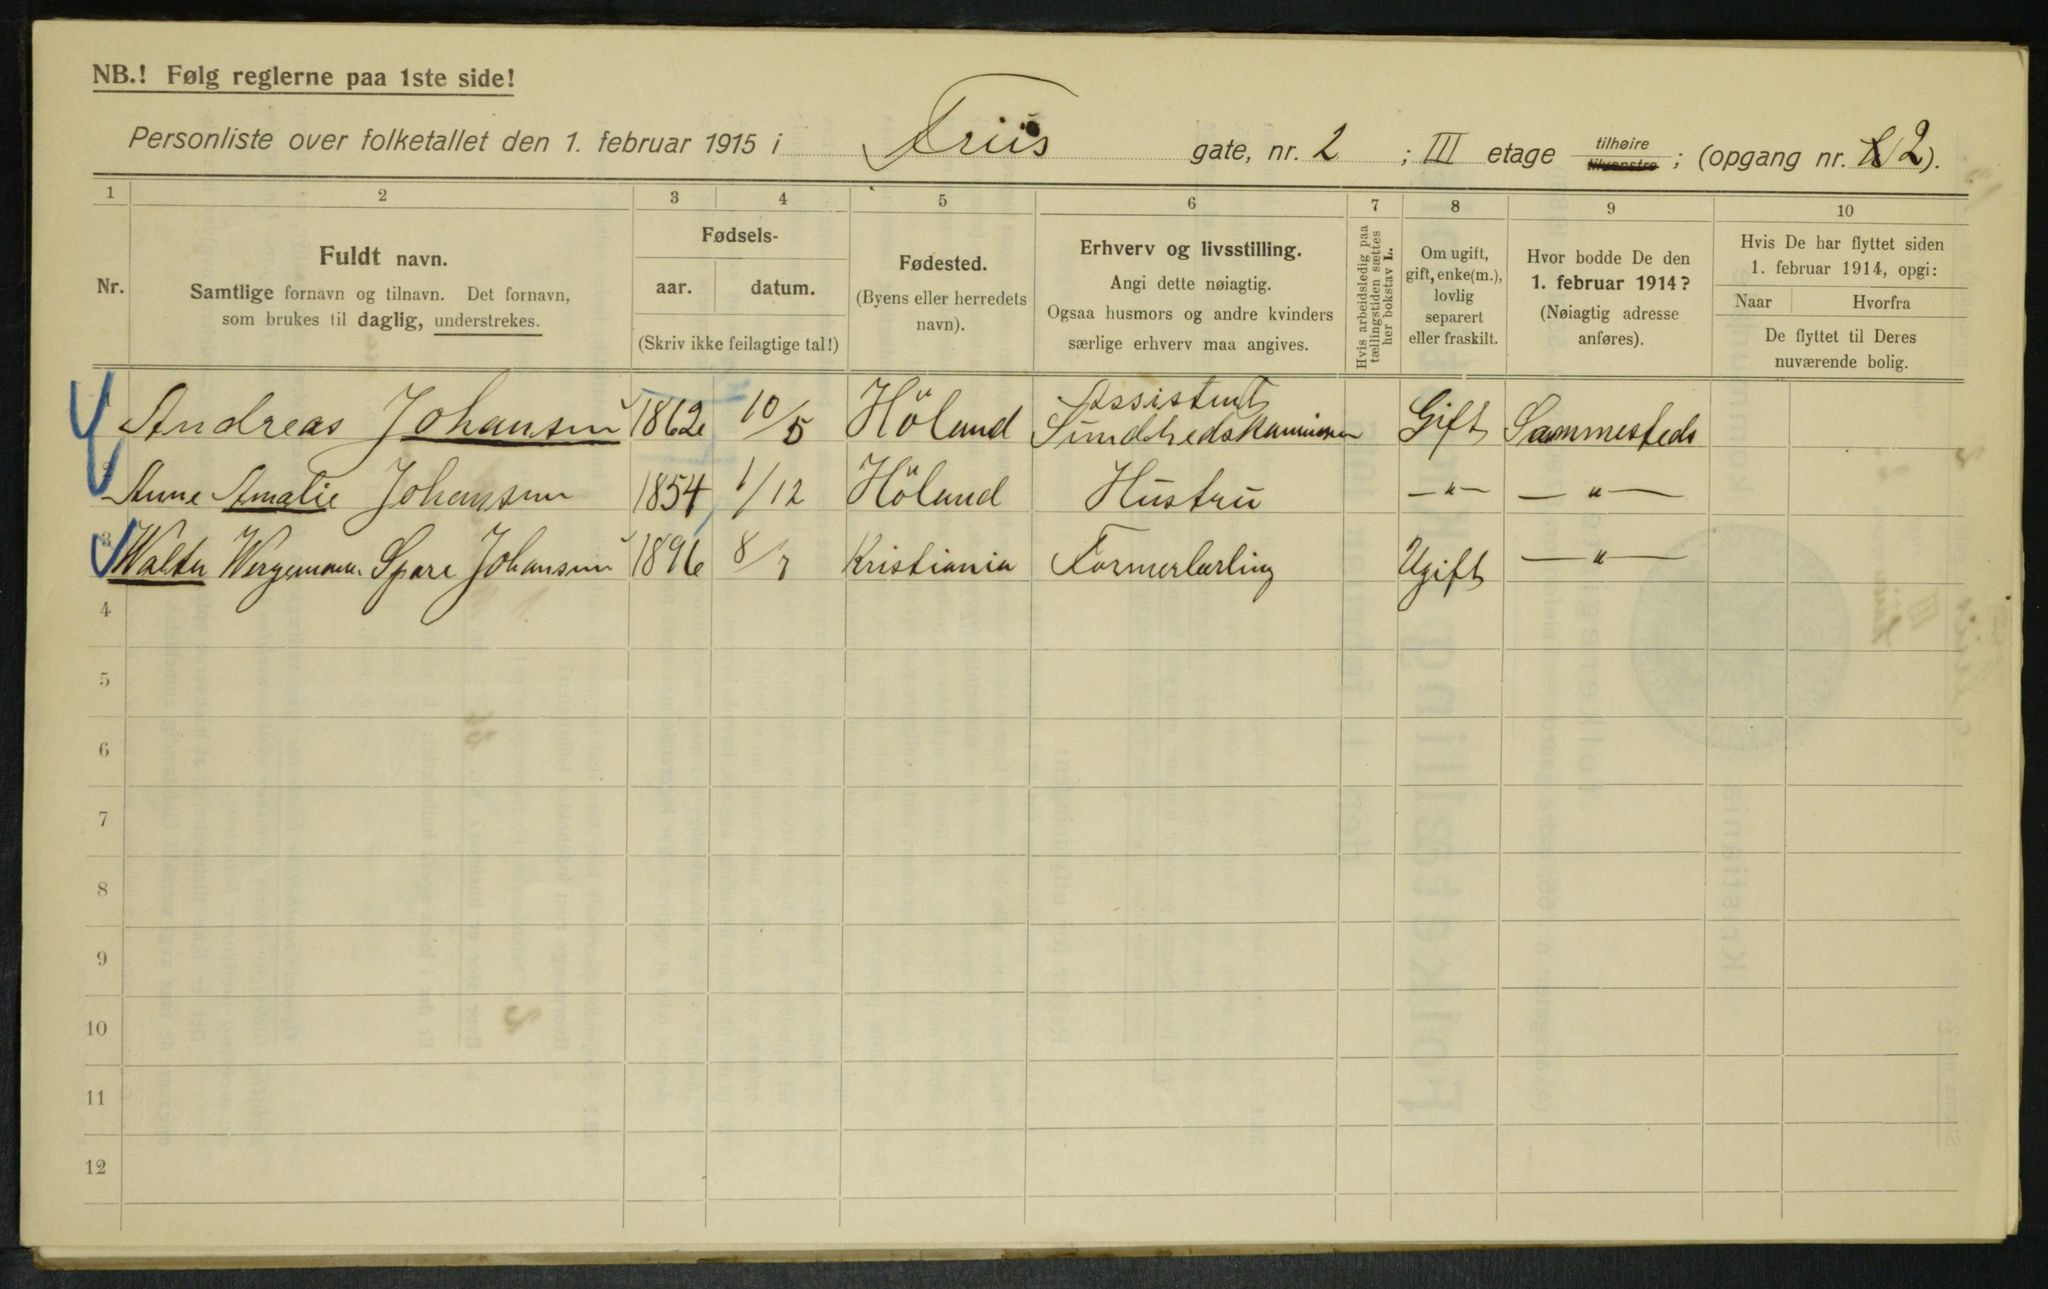 NB.! Følg reglerne paa 1ste side!
Personliste over folketallet den 1. februar 1915 i Friis gate, nr. 2 ; III etage tilhøire tilvenstre ; (opgang nr. 2).
1 2 3 4 5 6 7 8 9 10
Nr.
Fuldt navn.
Samtlige fornavn og tilnavn. Det fornavn,
som brukes til daglig, understrekes.
Fødsels-
aar. datum.
(Skriv ikke feilagtige tal!)
Fødested.
(Byens eller herredets
navn).
Erhverv og livsstilling.
Angi dette nøiagtig.
Ogsaa husmors og andre kvinders
særlige erhverv maa angives.
Hvis arbeidsledig paa
tællingstiden sættes
her bokstav L.
Om ugift,
gift, enke(m.),
lovlig
separert
eller fraskilt.
Hvor bodde De den
1. februar 1914?
(Nøiagtig adresse
anføres).
Hvis De har flyttet siden
1. februar 1914, opgi:
Naar Hvorfra
De flyttet til Deres
nuværende bolig.
1 Andreas Johansen 1862 10/5 Höland Assistent Sundhedskommisionen Gift Sammesteds
2 Anne Amalie Johansen 1854 1/12 Höland Hustru —"— —"—
3 Walter Spare Johansen 1896 8/7 Kristiania Formerlærling Ugift —"—
4
5
6
7
8
9
10
11
12